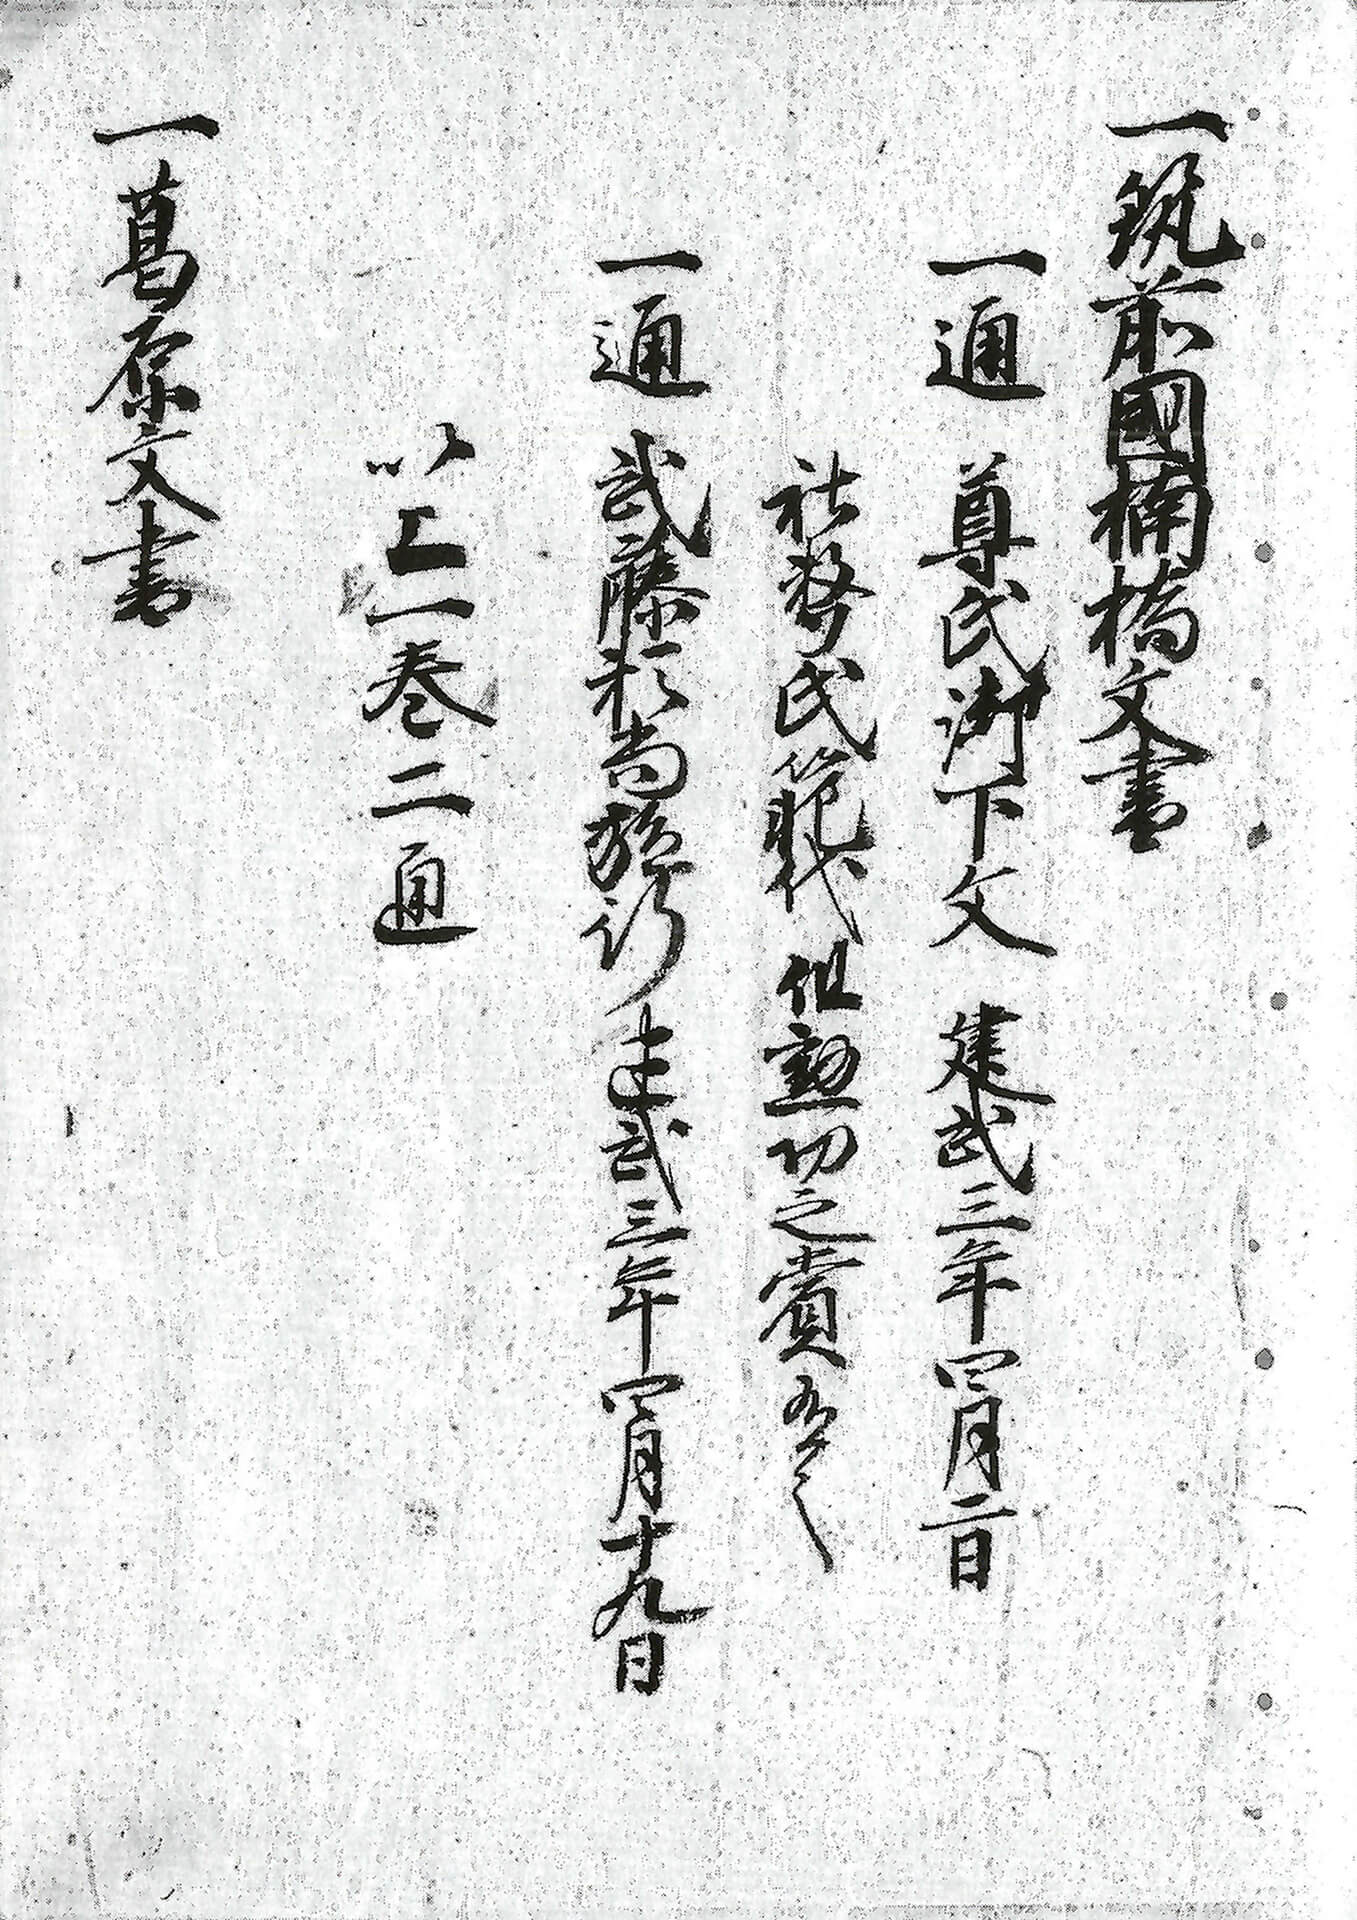 一筑前國楠橋文書
一通 尊氏御下文 建武三年四月二日
社務氏範代 但勲功之賞
一通 武藤 尚 施行 建武三年四月十九日
以上一巻二通
一葛原文書